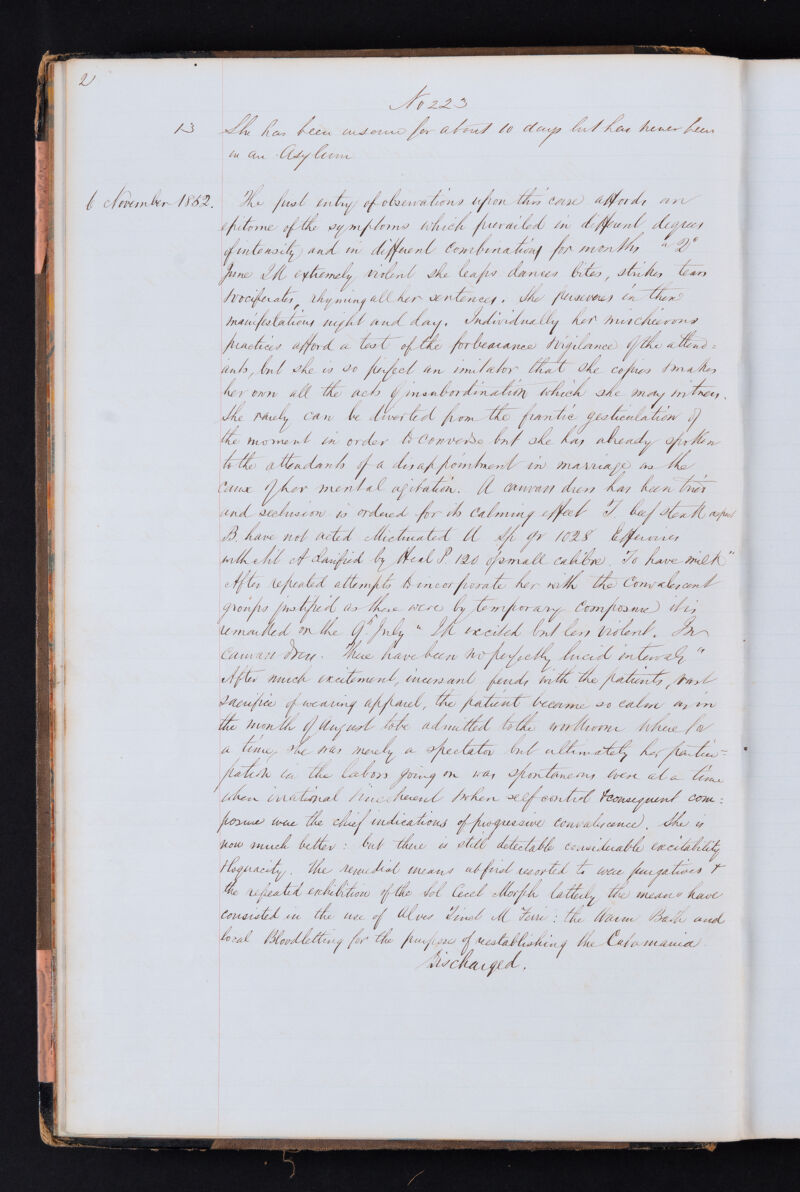 2
No 223
13 She has been insane for about 10 days but has never been
in an Asylum
6 November 1852. The first entry of observations upon this case affords an
epitome of the symptoms which prevailed in different degrees
of intensity and in different combinations for months "2d
June IR extremely violent she leaps dances bites, strikes tears
vociferates, rhyming all her sentences. She perseveres in these
manifestations night and day. Individually her mischievous
practices afford a test of the forbearance & vigilance of the attend=
ants, but she is so perfect an imitator that she copies & makes
her own all the acts of insubordination which she may witness.
She rarely can be diverted from the frantic gesticulation of
the moment in order to converse but she has already spoken
to the attendants of a disappointment in marriage as the
cause of her mental agitation. A canvass dress has been tried
and seclusion is ordered for its calming effect T beef steak
B have not acted Micturated U Sp gr 1028 Effervesces
with Nit A Clarified by Heat P. 120 of small calibre. To have milk"
After repeated attempts to incorporate her with the Convalescent
groups justified as these were by temporary composure it is
remarked on the 9th July "IR excited but less violent. In
canvass dress. There have been no perfectly lucid intervals"
After much excitement, incessant feuds with the patients, vast
sacrifice of wearing apparel, the patient became so calm as in
the month of August to be admitted to the workroom where for
a time she was merely a spectator but ultimately her partici=
pation in the labors going on was spontaneous even at a time
when irrational & incoherent & when self control & consequent com=
posure were the chief indications of progressive convalescence. She is
now much better: but there is still detectable considerable excitability
& loquacity. The remedial means at first resorted to were purgatives &
the repeated exhibition of the Sol Morph latterly the means have
consisted in the use of Aloes Tinct M Ferri: the Warm Bath and
local Bloodletting for the purpose of reestablishing the Catamenia.
Discharged.